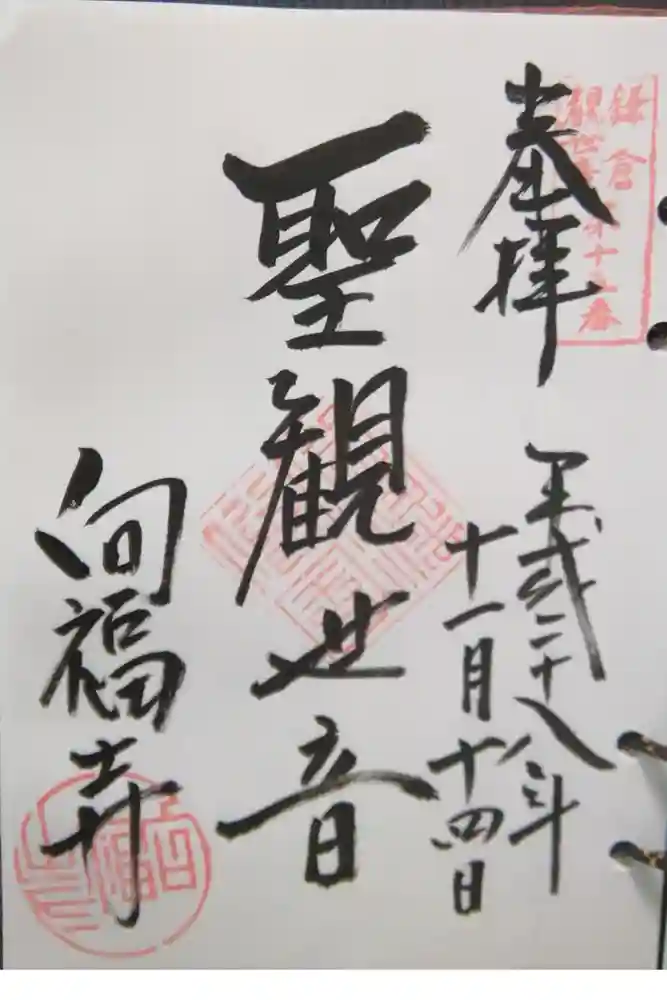 鎌倉
観世音
奉拝
平成二十八年
十一月十四日
聖観世音
向福寺